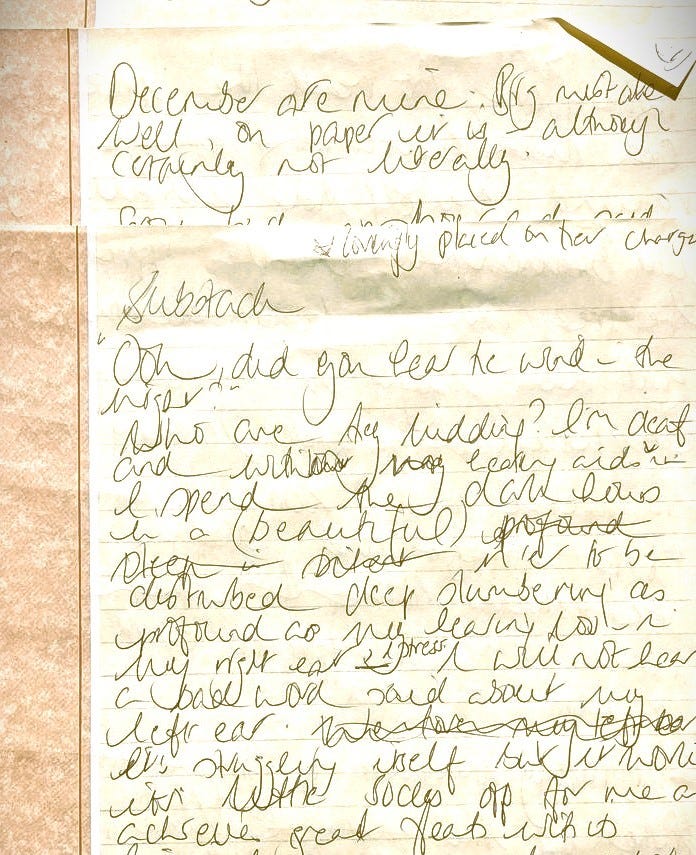 December are mine. Big mistake
well, on paper it is - although
certainly not literally.
lovingly placed on her charge
Substack
"Ooh, did you hear the wind in the
night?"
Who are they kidding? I'm deaf
and without my hearing aids in
I spend the dark hours
in a (beautiful) profound
sleep in silent to be
disturbed deep slumbering as
profound as my hearing loss in
my right ear stress I will not hear
a bad word said about my
left ear.
it's struggling itself but it works
its little socks off for me a
achieve great feats with its